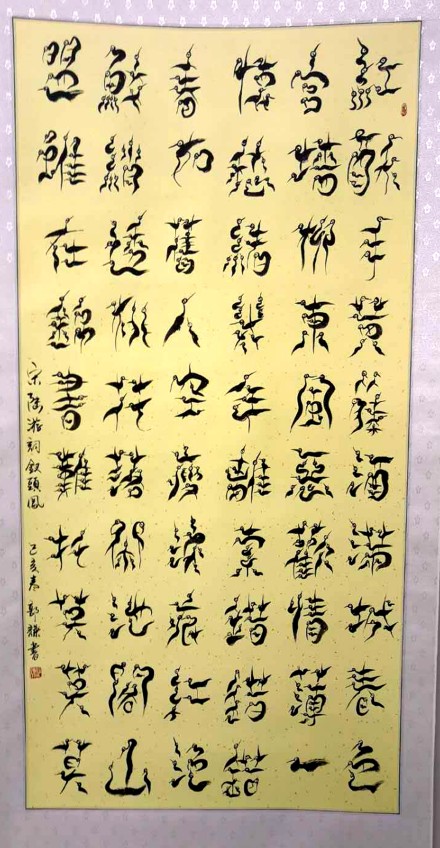 紅酥手黃藤酒滿城春色
宮墻柳東風惡歡情薄一
懷愁緒幾年離索錯錯錯
春如舊人空瘦淚痕紅浥
鮫綃透桃花落閑池閣山
盟雖在錦書難托莫莫莫
宋陸游詞釵頭鳳 己亥春 書